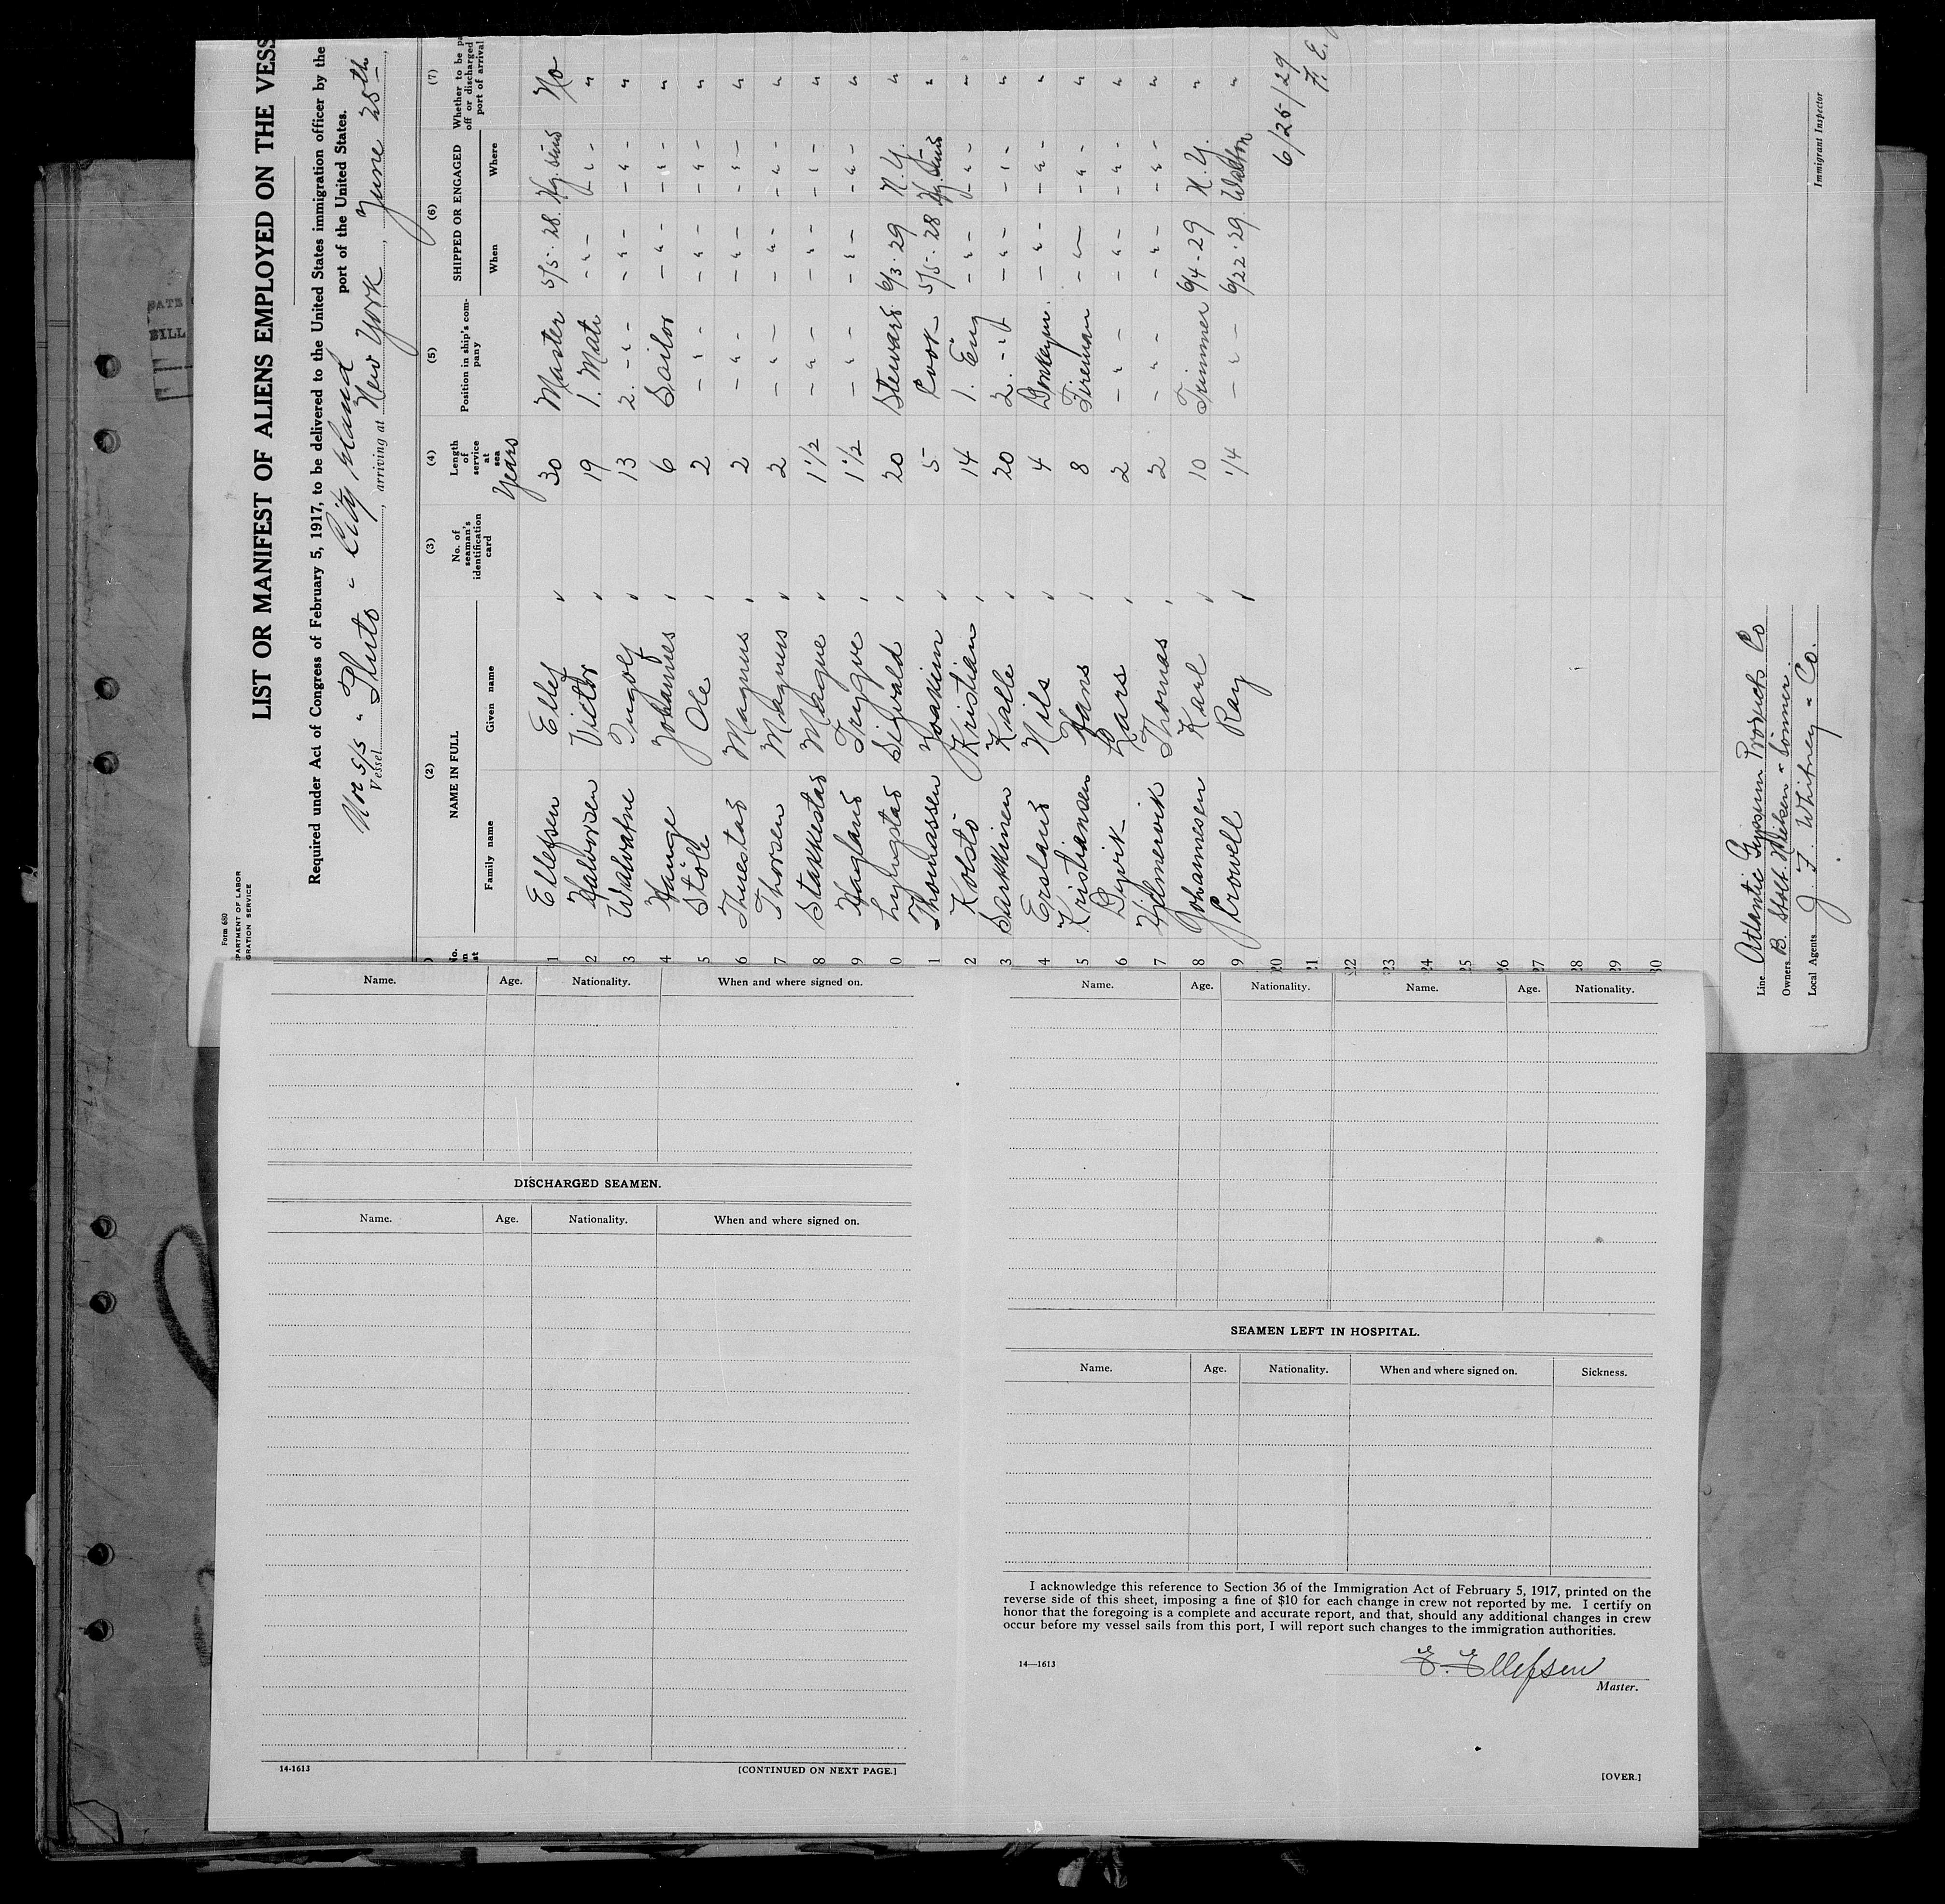 Form 680
PARTMENT OF LABOR
GRATION SERVICE
LIST OR MANIFEST OF ALIENS EMPLOYED ON THE VESS
Required under Act of Congress of February 5, 1917, to be delivered to the United States immigration officer by the
port of the United States.
Nor S/S "Pluto" City Island
Vessel , arriving at New York, June 25th,
(2) (3) (4) (5) (6) (7)
No. NAME IN FULL No. of seaman's identification card Length of service at sea Position in ship's company SHIPPED OR ENGAGED Whether to be pa off or discharged port of arrival
Family name Given name Years When Where
1 Ellefsen Ellef 30 Master 5/5-28. No
2 Halvorsen Victor 19 1. Mate - " - - " - "
3 Walvatne Ingolf 13 2. - " - - " - - " - "
4 Hauge Johannes 6 Sailor - " - - " - "
5 Støle Ole 2 - " - - " - - " - "
6 Tuestad Magnus 2 - " - - " - - " - "
7 Thorsen Magnus 2 - " - - " - - " - "
8 Stakkestad Magne 1 1/2 - " - - " - - " - "
9 Hagland Trygve 1 1/2 - " - - " - - " - "
0 Lyngstad Sigvald 20 Steward 6/3-29 N.Y. "
1 Thomassen Joakim 5 Cook 5/5-28 "
2 Kolstø Kristian 14 1. Eng - " - - " - "
3 Sarkkinen Kalle 20 2. - " - - " - - " - "
4 Ersland Nils 4 Donkeym. - " - - " - "
5 Kristiansen Hans 8 Fireman - " - - " - "
6 Lars 2 - " - - " - - " - "
7 Thomas 2 - " - - " - - " - "
8 Johannesen Karl 10 Trimmer 6/4-29 N.Y. "
9 Crowell Ray 1/4 - " - 6/22-29. Walton "
20 6/25/29
21
22
23
24
25
26
27
28
29
30
Line Atlantic Gypsum Products Co
Owners B. Stolt Nielsen & Sönner.
Local Agents J. F. Whitney & Co.
Immigrant Inspector
Name. Age. Nationality. When and where signed on.
DISCHARGED SEAMEN.
Name. Age. Nationality. When and where signed on.
14-1613 [CONTINUED ON NEXT PAGE.]
Name. Age. Nationality. Name. Age. Nationality.
SEAMEN LEFT IN HOSPITAL.
Name. Age. Nationality. When and where signed on. Sickness.
I acknowledge this reference to Section 36 of the Immigration Act of February 5, 1917, printed on the
reverse side of this sheet, imposing a fine of $10 for each change in crew not reported by me. I certify on
honor that the foregoing is a complete and accurate report, and that, should any additional changes in crew
occur before my vessel sails from this port, I will report such changes to the immigration authorities.
14—1613 E. Ellefsen
Master.
[OVER.]